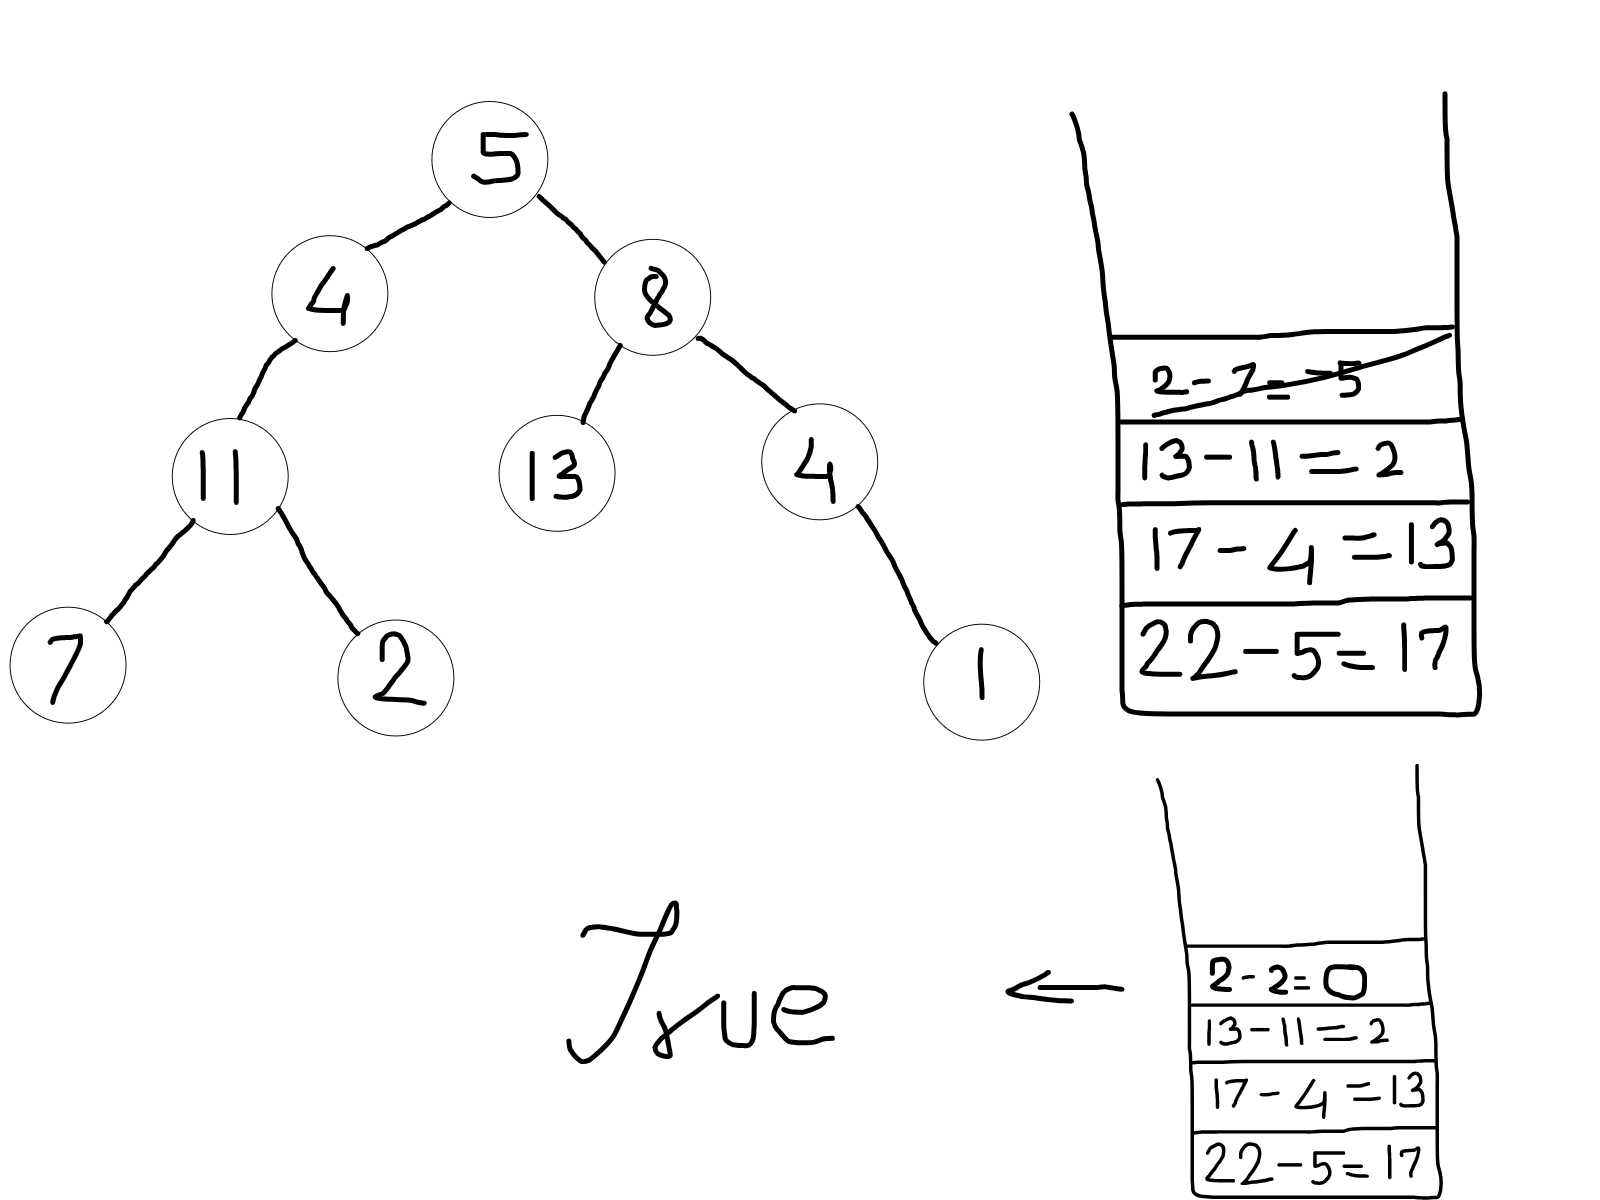 5
4
8
11
13
4
7
2
1
2 - 7 = -5
13 - 11 = 2
17 - 4 = 13
22 - 5 = 17
2 - 2 = 0
13 - 11 = 2
17 - 4 = 13
22 - 5 = 17
True